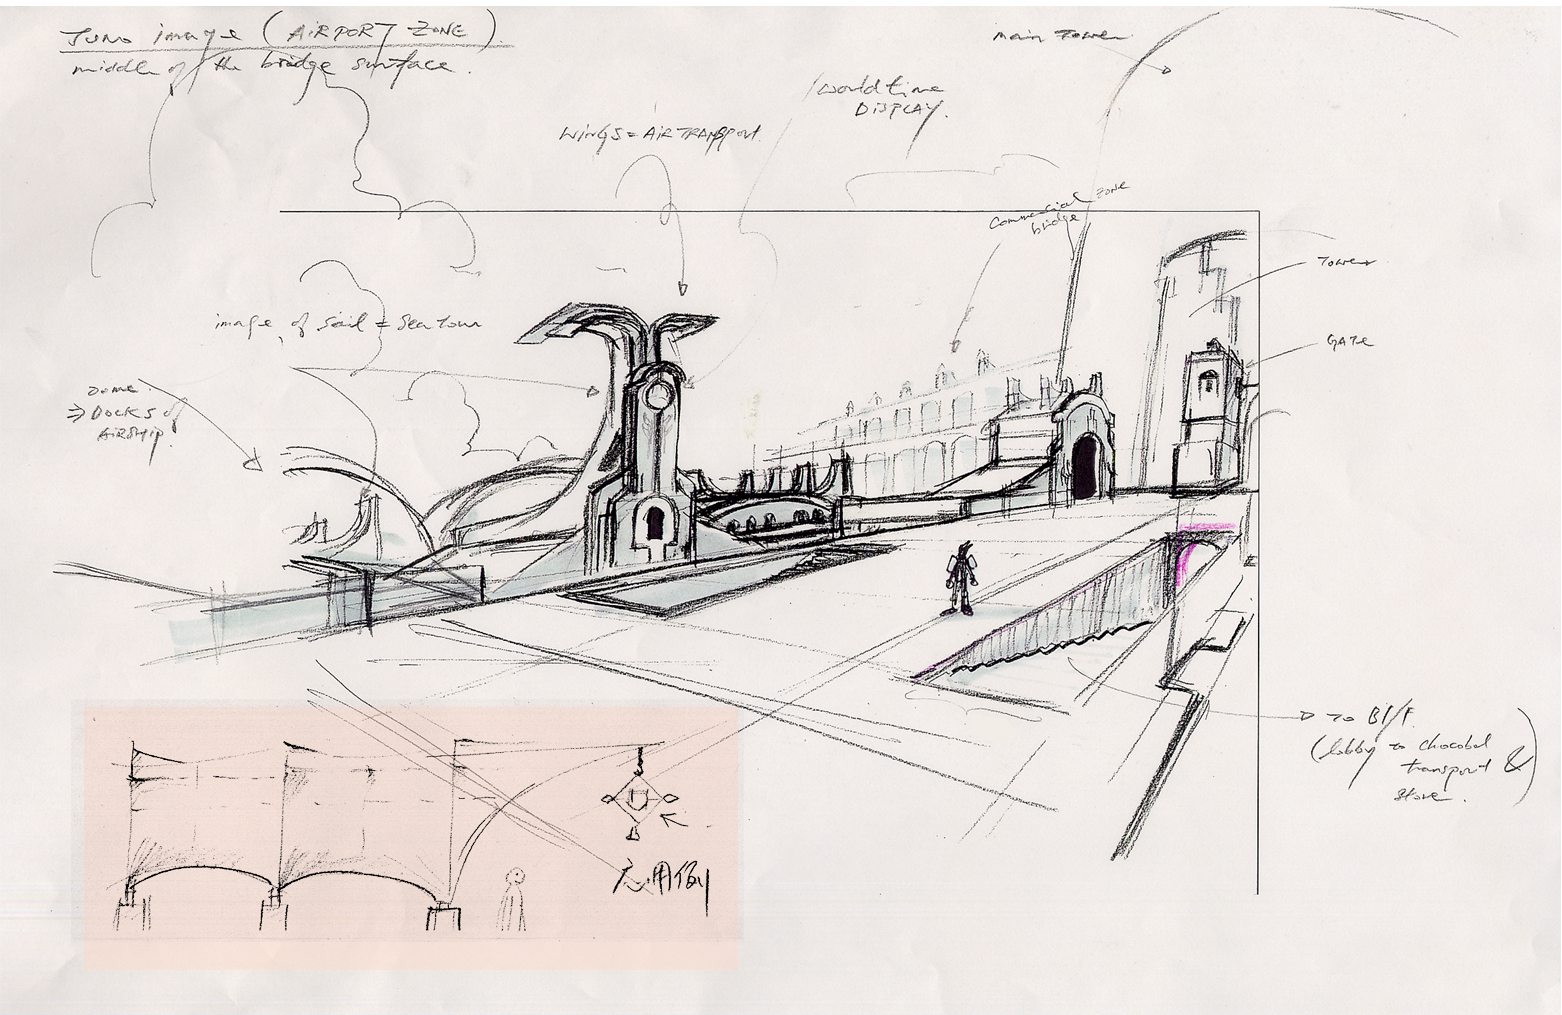 Juno image (AIRPORT ZONE).
middle of the bridge surface.
main Tower
world time
DISPLAY.
WINGS = AIR TRANSPORT.
Commercial zone
bridge
Tower
GATE
image of sail = sea town
Dome.
⇒ DOCKS of
AIRSHIP.
TO B1/F.
(lobby to chocobo
transport &
store.)
応用例